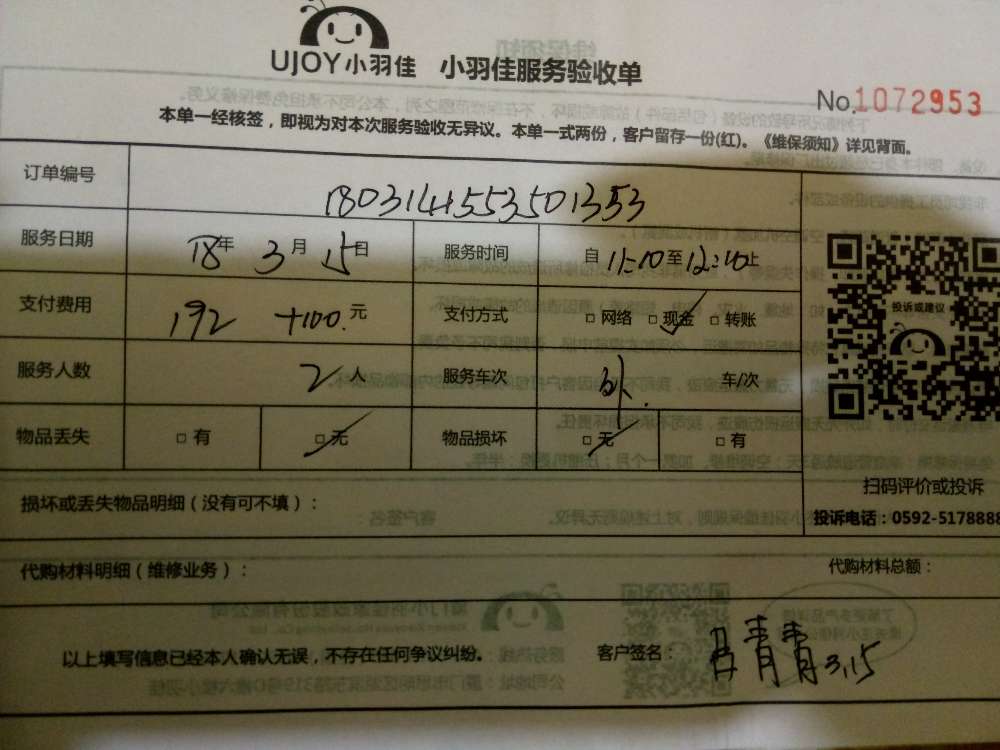 UJOY小羽佳 小羽佳服务验收单
No.1072953
本单一经核签，即视为对本次服务验收无异议。本单一式两份，客户留存一份(红)。《维保须知》详见背面。
订单编号 1803141553501353
服务日期 18年 3月 15日 服务时间 自 11:10至12:40止
支付费用 192 +100.元 支付方式 □ 网络 □ 现金 □ 转账
投诉或建议
服务人数 2人 服务车次 车/次
物品丢失 □ 有 □ 无 物品损坏 □ 无 □ 有
扫码评价或投诉
损坏或丢失物品明细（没有可不填）：
投诉电话：0592-5178888
代购材料明细（维修业务）：
代购材料总额：
以上填写信息已经本人确认无误，不存在任何争议纠纷。 客户签名： 青青3.15